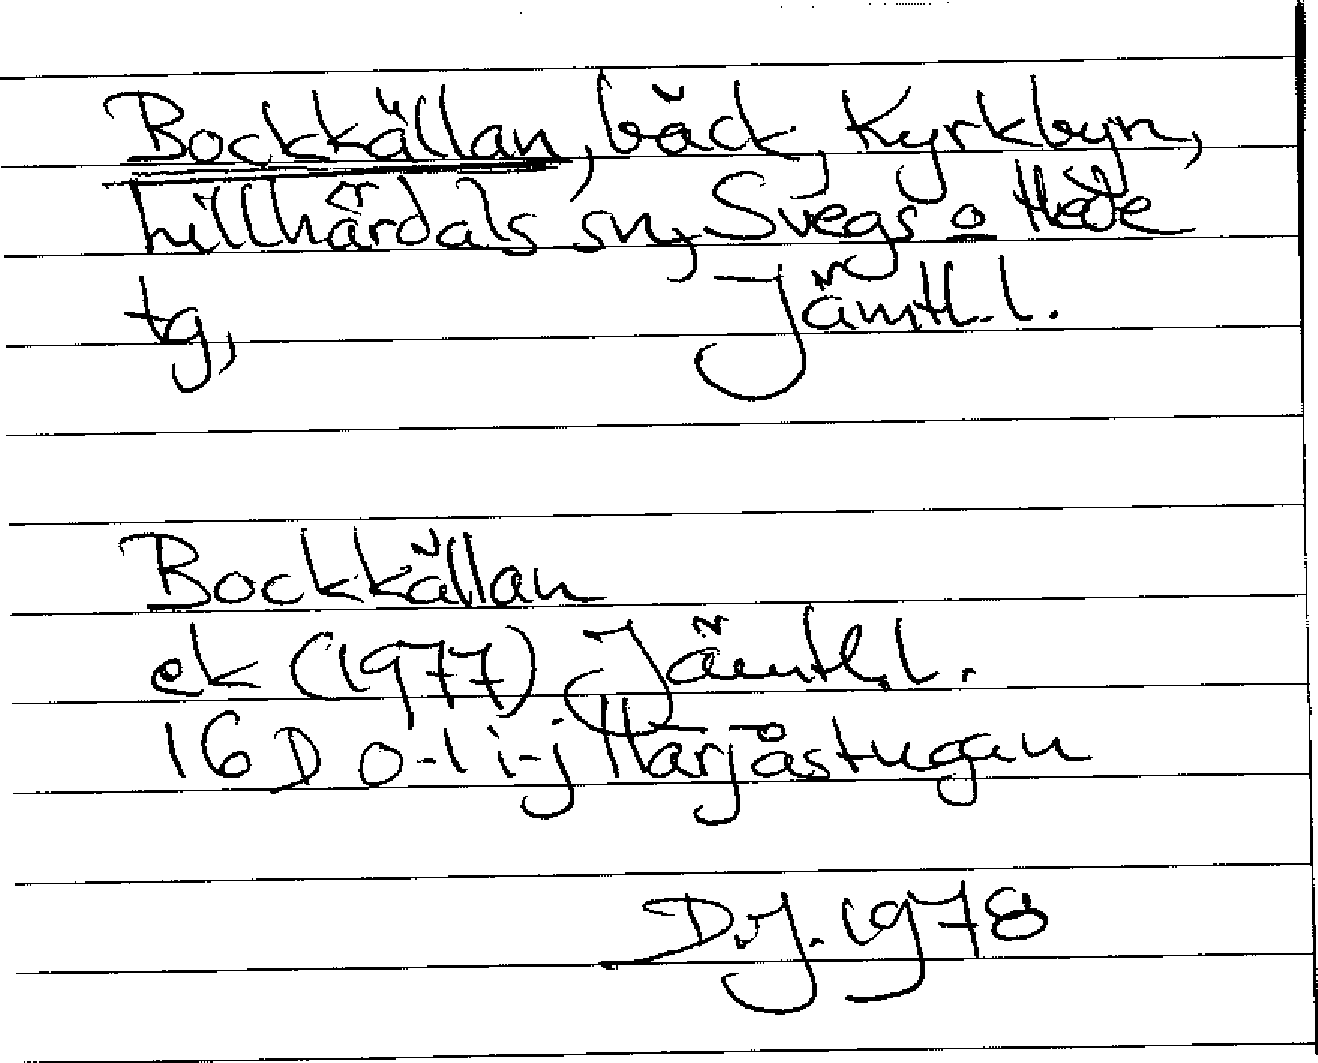 Bockkällan, bäck, Kyrkbyn,
Lillhärdals sn, Svegs o Hede
tg, Jämtl.l.
Bockkällan
ek (1977) Jämtl.l.
16 D 0-1 i-j Härjåstugan
D.J. 1978